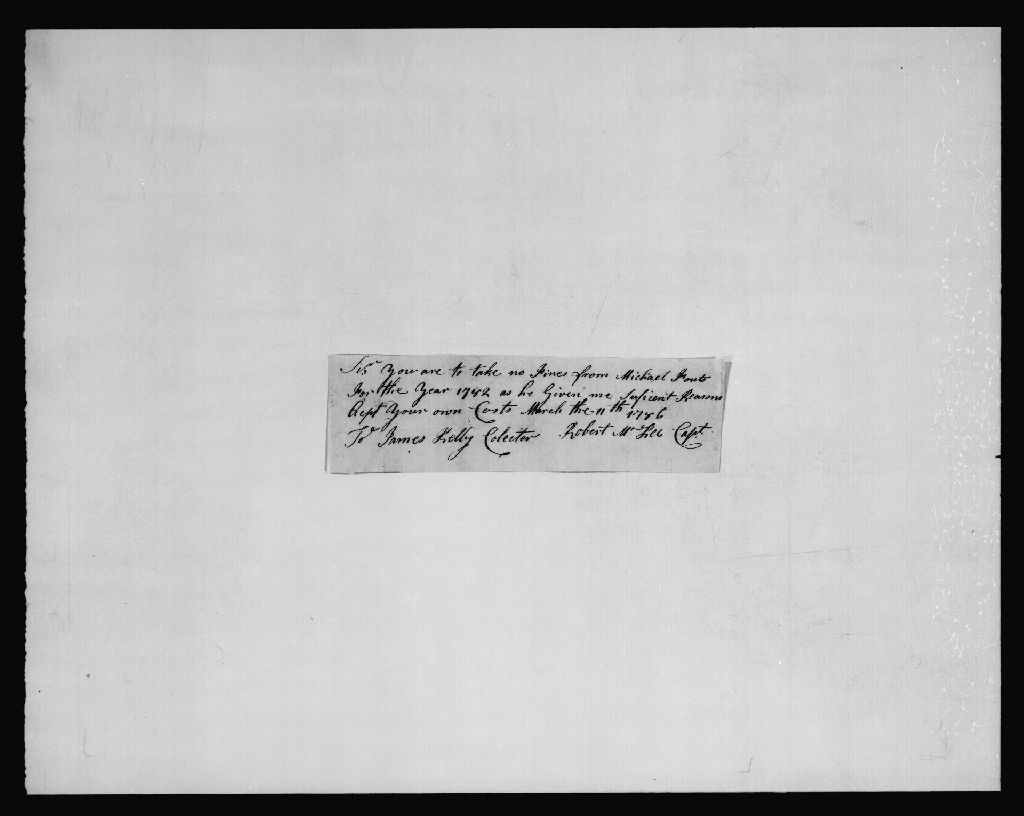 Sir You are to take no Fines from Michael Fouts
For the Year 1782 as he Given me Suficent Reasons
Acept Your own Costs March the 11th 1786
To James Kelly Colector Robert Mc Kee Capt